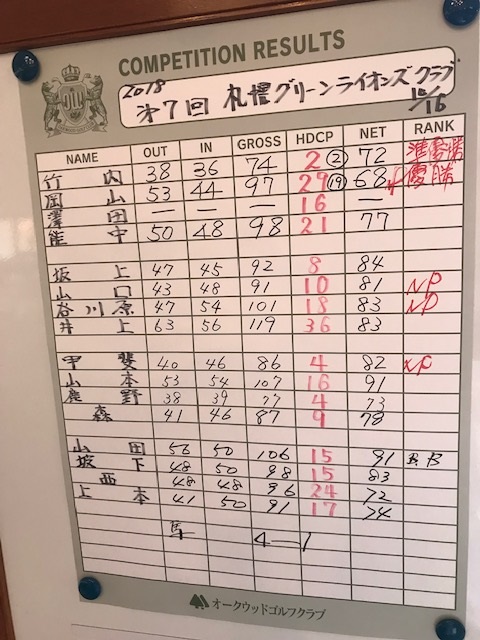 COMPETITION RESULTS
2018
第7回 札幌グリーンライオンズクラブ
10/16
NAME OUT IN GROSS HDCP NET RANK
竹内 38 36 74 2 ② 72 準優勝
岡山 53 44 97 29 ⑲ 68 優勝
澤田 — — — 16 —
能中 50 48 98 21 77
坂上 47 45 92 8 84
山口 43 48 91 10 81 NP
谷川原 47 54 101 18 83 NP
井上 63 56 119 36 83
甲斐 40 46 86 4 82 NP
山本 53 54 107 16 91
鹿野 38 39 77 4 73
森 41 46 87 9 78
山田 56 50 106 15 91 B.B
坂下 48 50 98 15 83
西 48 48 96 24 72
上本 41 50 91 17 74
馬 4—1
オークウッドゴルフクラブ